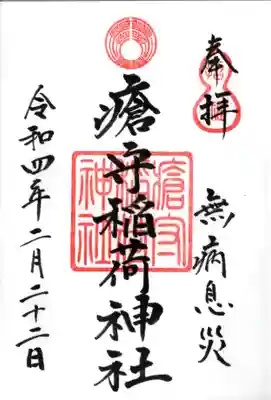 奉拝
無病息災
瘡守稲荷神社
令和四年二月二十二日
瘡守稲荷神社